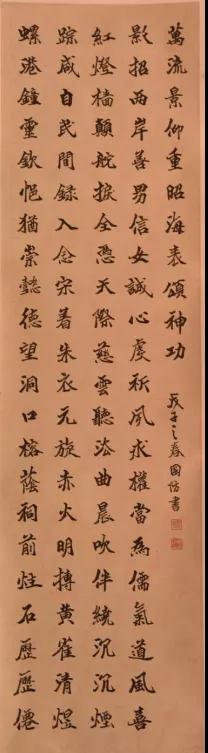 螺港鐘靈欽挹猶崇懿德望洞口榕蔭祠前炷石歷歷僊
踪咸自民間錄入念宋着朱衣元旋赤火明摶黃雀清煜
紅燈檣顛舵捩全憑天際慈雲聽法曲晨吹伴繞沉沉煙
影招兩岸善男信女誠心虔祈夙求權當為儒氣道風喜
萬流景仰重昭海表頌神功
戊子之春國怡書